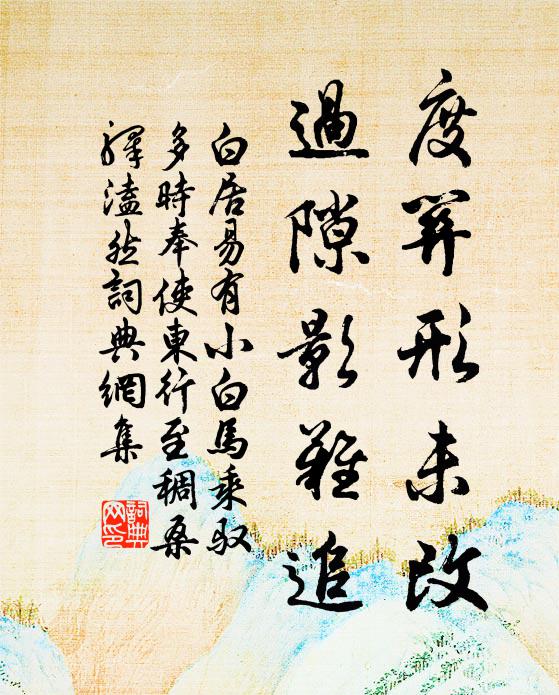 度關形未改
過隙影難追
白居易有小白馬乘馭
多時奉使東行至稠桑
驛溘然詞典網集
詞典
网印